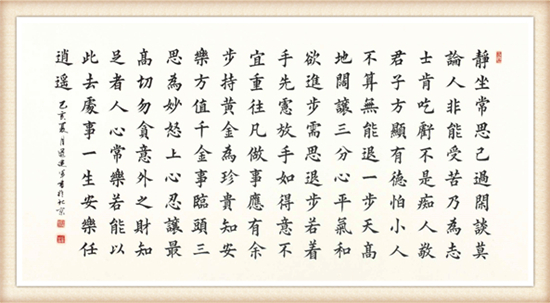 靜坐常思己過閒談莫
論人非能受苦乃為志
士肯吃虧不是痴人敬
君子方顯有德怕小人
不算無能退一步天高
地闊讓三分心平氣和
欲進步需思退步若着
手先慮放手如得意不
宜重往凡做事應有余
步持黃金為珍貴知安
樂方值千金事臨頭三
思為妙怒上心忍讓最
高切勿貪意外之財知
足者人心常樂若能以
此去處事一生安樂任
逍遥
己亥夏月書於北京